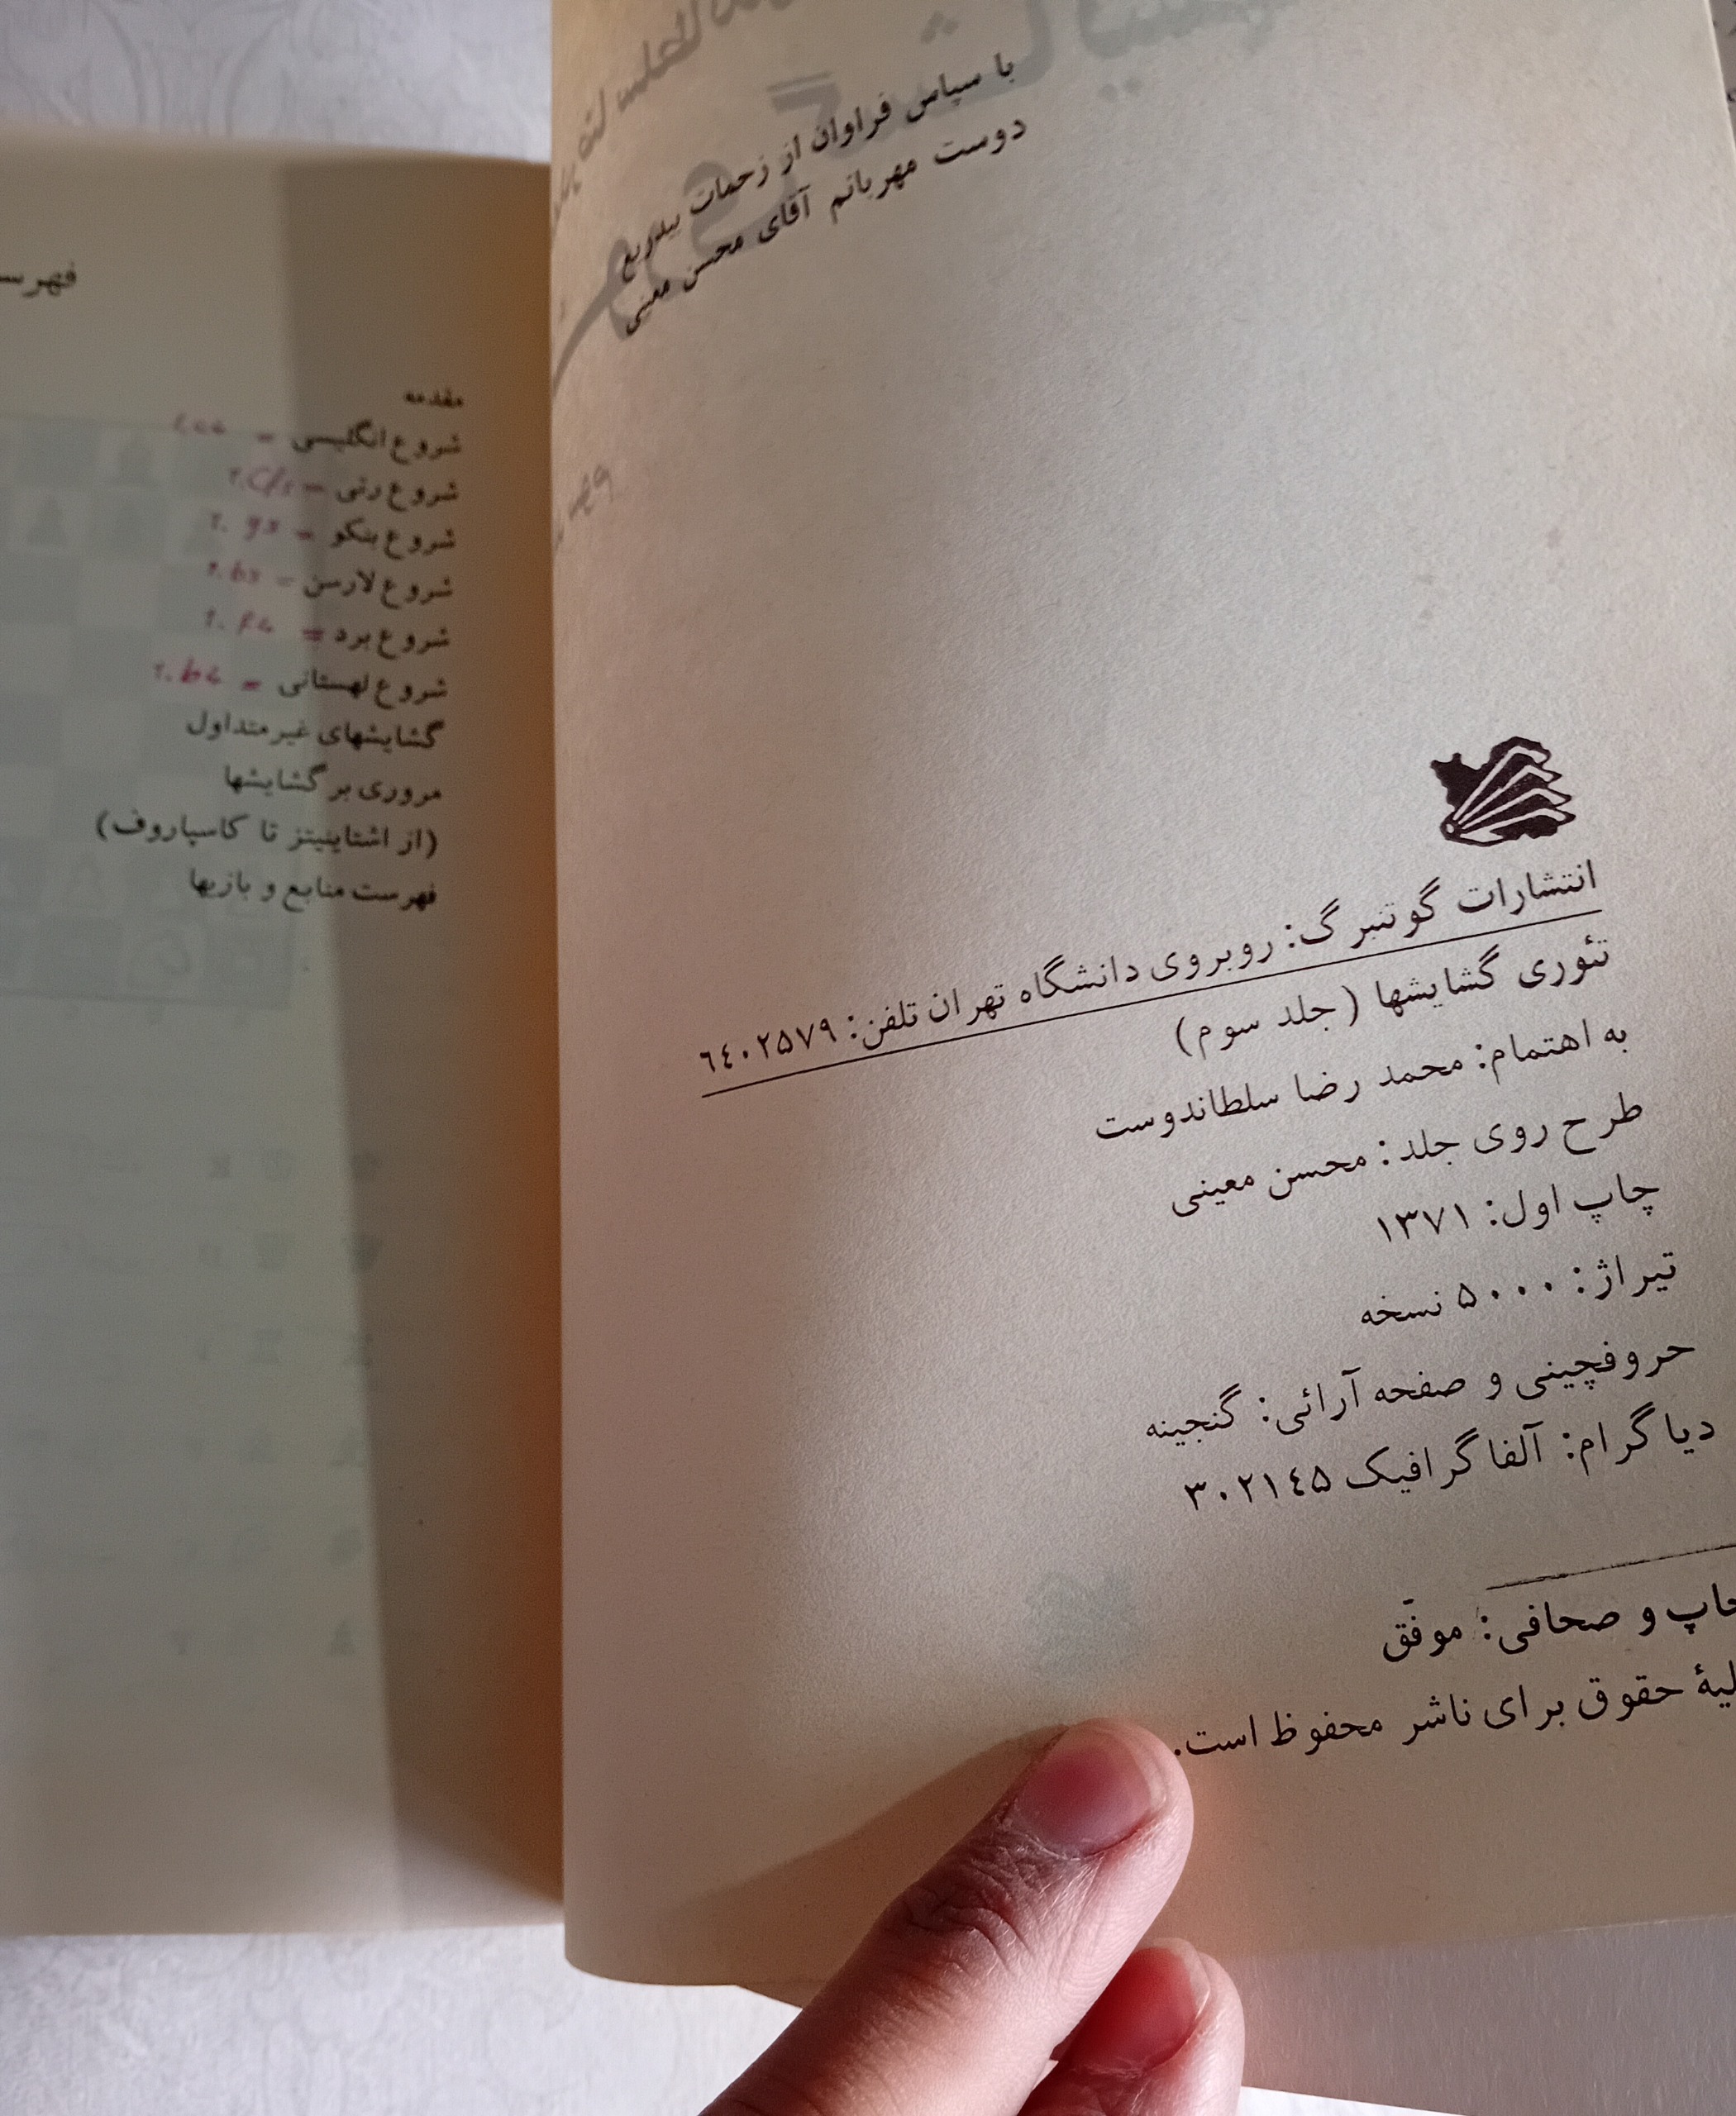 با سپاس فراوان از زحمات بیدریغ
دوست مهربانم آقای محسن معینی
انتشارات گوتنبرگ: روبروی دانشگاه تهران تلفن: ٦٤٠٢٥٧٩
تئوری گشایشها (جلد سوم)
به اهتمام: محمد رضا سلطاندوست
طرح روی جلد: محسن معینی
چاپ اول: ۱۳۷۱
تیراژ: ۵۰۰۰ نسخه
حروفچینی و صفحه آرائی: گنجینه
دیاگرام: آلفا گرافیک ۳۰۲۱٤۵
چاپ و صحافی: موفّق
حقوق برای ناشر محفوظ است.
مقدمه
شروع انگلیسی =
شروع رتی =
شروع بنکو = 1. g3
شروع لارسن = 1. b3
شروع برد = 1. f4
شروع لهستانی = 1. b4
گشایشهای غیرمتداول
مروری بر گشایشها
(از اشتاینیتز تا کاسپاروف)
فهرست منابع و بازیها